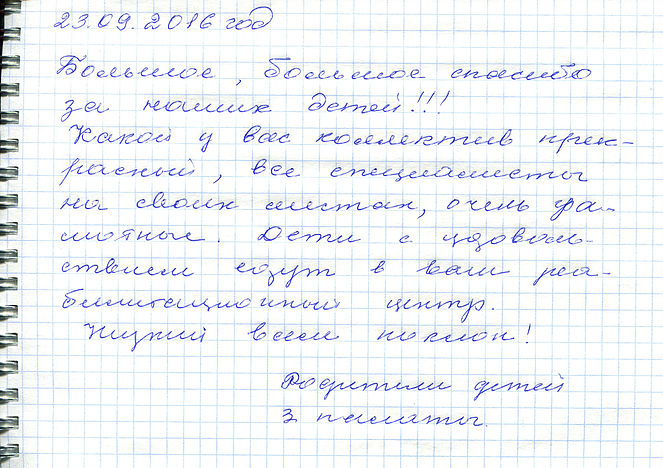 23.09.2016 год
Большое, большое спасибо
за наших детей!!!
Какой у вас коллектив прек-
расный, все специалисты
на своих местах, очень гра-
мотные. Дети с удоволь-
ствием едут в ваш реа-
билитационный центр.
Низкий вам поклон!
Родители детей
3 палаты.